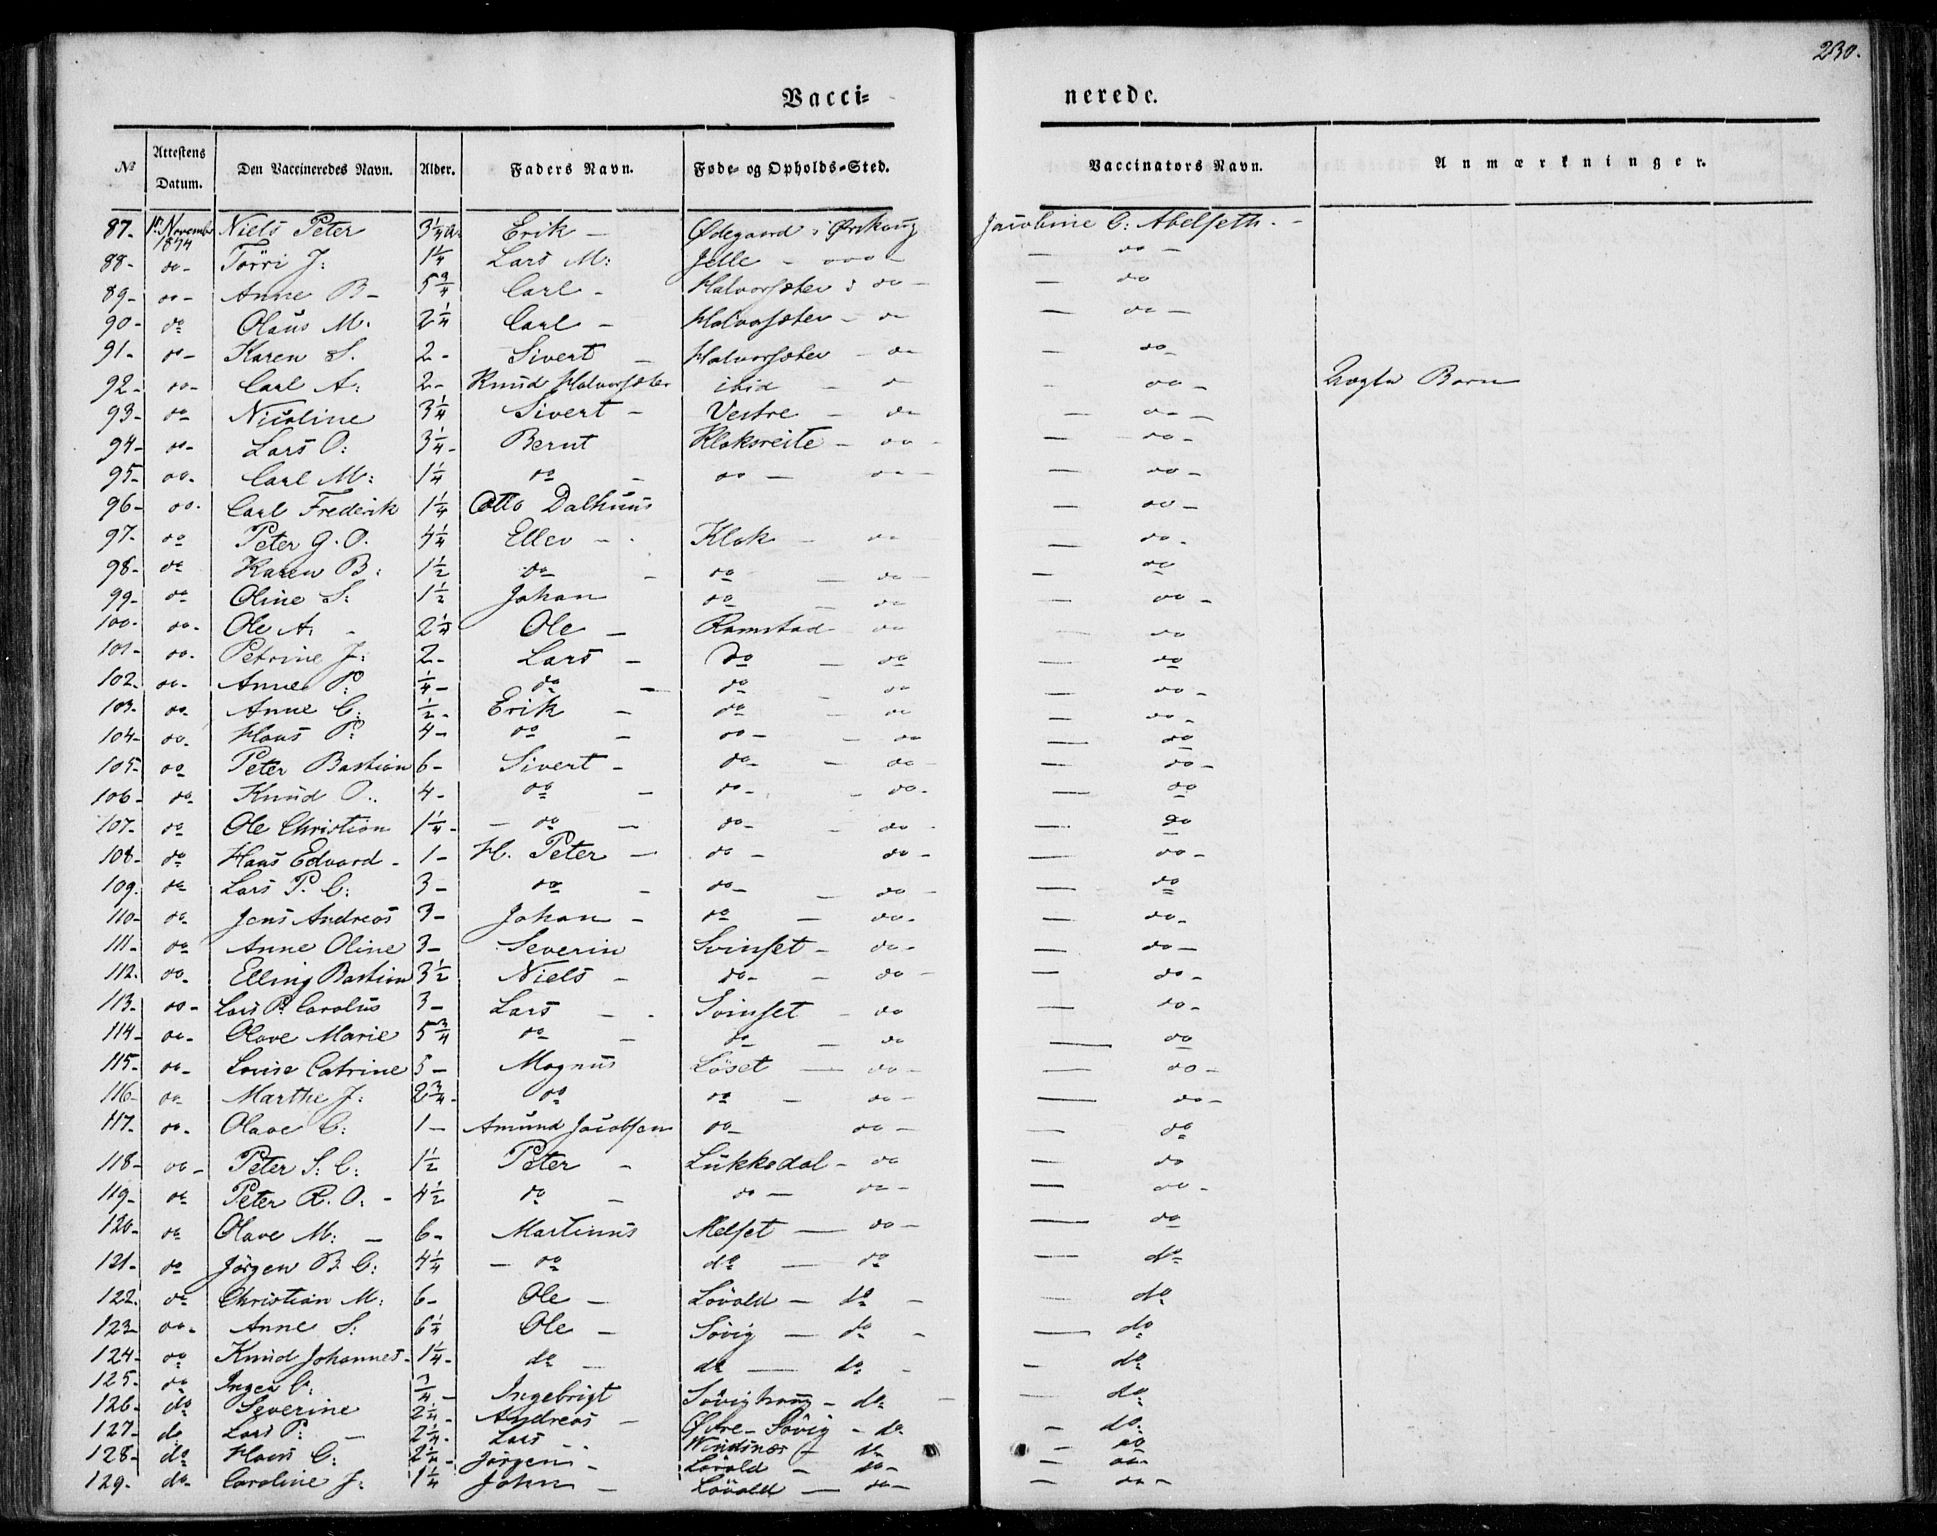 230.
Vacci- nerede.
№ Attestens Datum. Den Vaccineredes Navn. Alder. Faders Navn. Føde- og Opholds-Sted. Vaccinators Navn. Anmærkninger.
87- November 1874 Niels Peter 3 1/4 Erik - Ødegaard i Ørskoug Jacobine C: Abelseth. -
88- do- J: 1 1/4 Lars M: Jelle - do - - do -
89- do- Anne B- 5 3/4 Carl - Halvorsæter i do - - do
90- do Olaus M. 2 1/4 Carl - Halvorsæter - do - do -
91- do- Karen S. 2- Sivert - Halvorsæter - do - do-
92- do- Carl A: 2- Knud Halvorsæter ibid - do - do - Uægte Barn
93- do Nicoline 3 1/4 Sivert - Vestre - do - do -
94- do- Lars O: 3 1/4- Bernt Kloksreite - do - - do-
95- do- Carl M: 1 1/4 do - do - do - - do -
96- do. Carl Frederik 1 1/4 Otto Dalhuus - do -
97- do Peter G. O. 4 1/4 Ellev - Klok - do - do.
98- do Karen B: 1 1/2 do - do - do - do
99- do Oline S: 1 1/2 Johan do - do - do -
100- do- Ole A. 2 1/4 Ole - Ramstad - do - do
101- do. Petrine J: 2- Lars - do - do - do
102- do- Anne P: 1/4- do - do - do - do -
103- do Anne C: 1/2- Erik - do - do - do -
104- do. Hans P: 4- do - do - - do - do
105- do Peter Bastian 6- Sivert - do - do - - do -
106- do Knud O.. 4- do - do- - do. - do
107- do Ole Christian 1 1/4- - do - do- - do - - do
108- do Hans Edvard - 1- H. Peter - do - do - - do -
109. do Lars P. C: 3- do - do- - do - - do
110- do Jens Andreas 3- Johan - do - do. - do-
111- do Anne Oline 3- Severin Svinset - do - - do -
112. do. Elling Bastian 3 1/2 Niels - do - - do - - do -
113. do - Lars P. Carolus 3- Lars - Svinset - do - do-
114- do- Olave Marie 5 3/4 do - do - do - do
115- do- Lovise Catrine 5- Magnus Løset - do - - do -
116- do Marthe J: 2 3/4- do do - do - - do -
117- do. Olave C: 1- Amund Jacobsen do - do - - do
118- do- Peter S: C: 1 1/2 Peter - Lukkedal - do - do
119- do Peter R. O. - 4 1/2 do - do - do - - do -
120- do Olave M: - 6- Martinus Melset - do - - do
121- do Jørgen B C: 4 1/4 - do do - do - do
122. do Christian M: 6- Ole - Løvold - do - - do
123- do- Anne S: 6 1/4 Ole - Søvig - do - - do
124- do Knud Johannes- 1 1/4- do - do - do - - do
125- do Inger C: 3/4 - Ingebrigt Søvighaug - do - - do
126- do Severine 2 1/4- Andreas - Øvre-Søvig - do - do
127- do Lars P: - 2 1/4- Lars Vindsnes - do - do
128- do Hans C: 2 1/4- Jørgen - Løvold - do - - do-
129- do- Caroline J: 1 1/4 John - Løvold - do - - do -